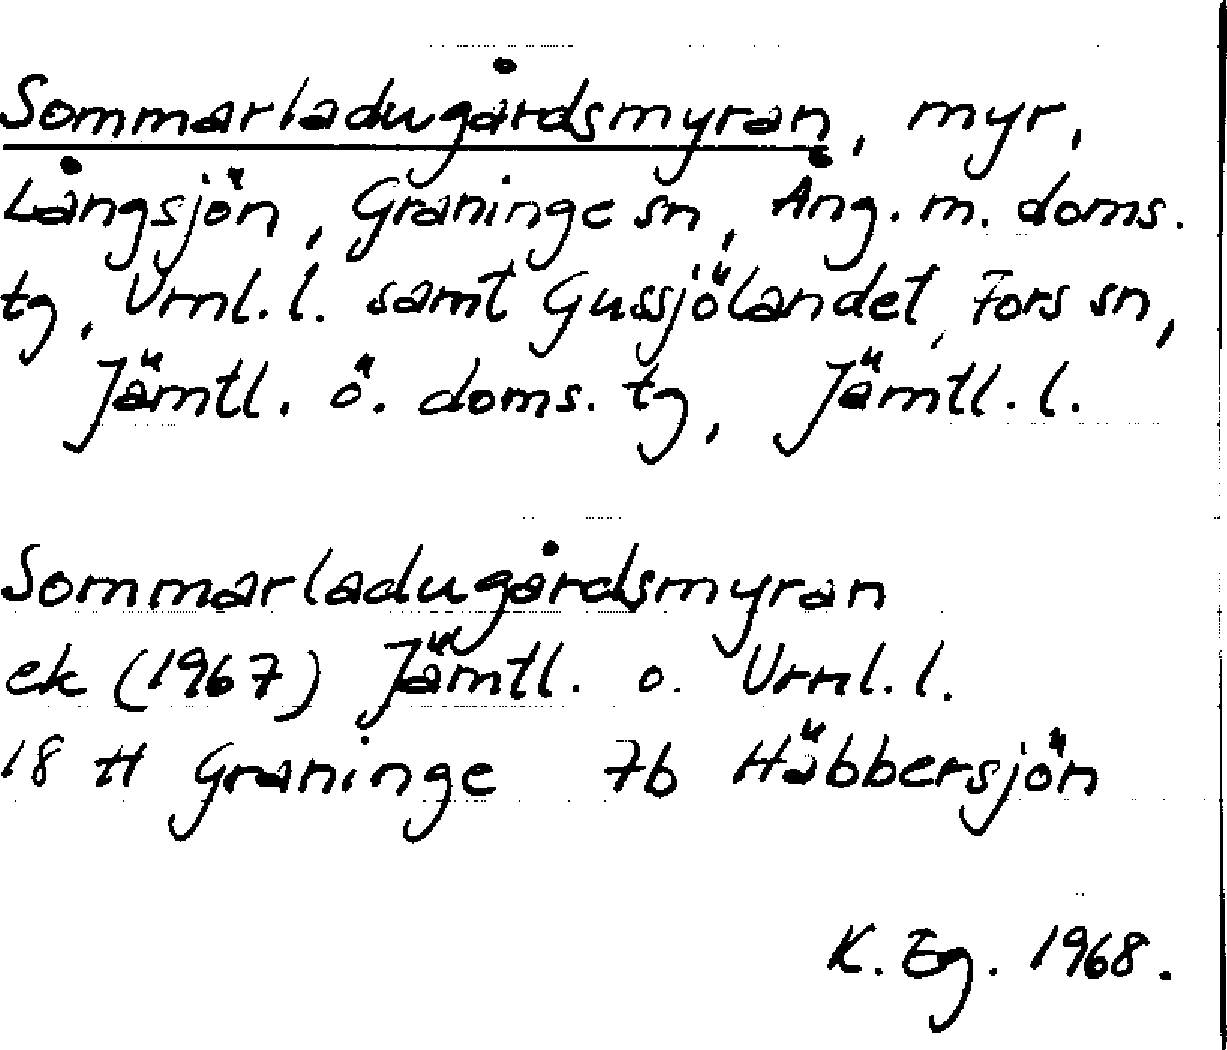 Sommarladugårdsmyran, myr,
Långsjön, Graninge sn, Ång. m. doms.
tg, Vrnl. l. samt Gussjölandet, Fors sn,
Jämtl. ö. doms. tg, Jämtl. l.
Sommarladugårdsmyran
ek (1967) Jämtl. o. Vrnl. l.
18 H Graninge 7b Häbbersjön
K. Eg. 1968.